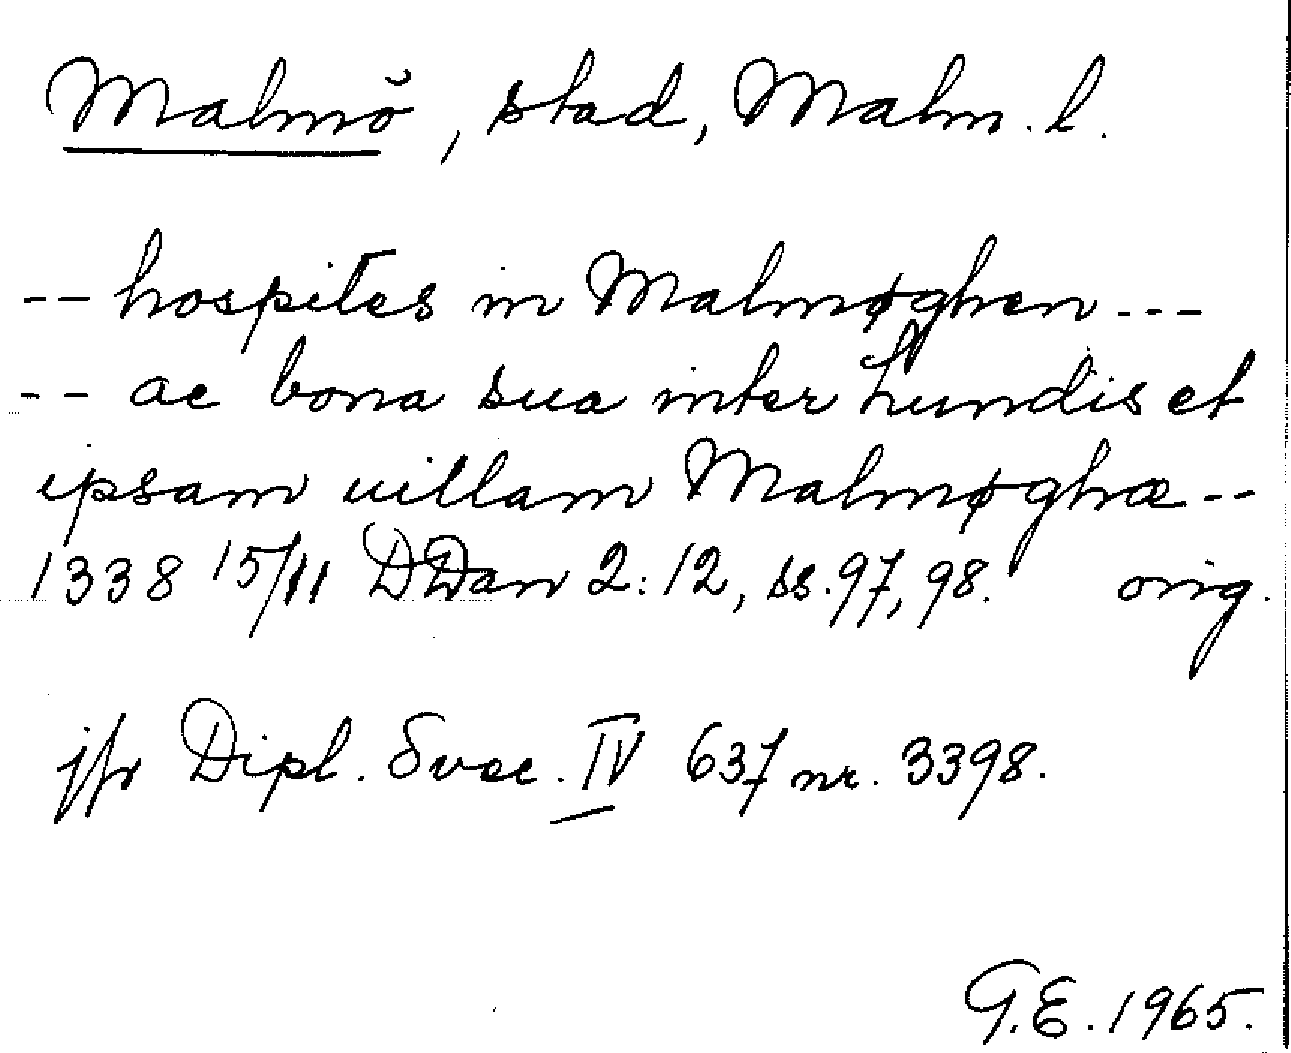 Malmö, stad, Malm. l.
-- hospites in Malmøghen ---
-- ac bona sua inter hundis et
ipsam uillam Malmøghæ --
1338 15/11 DDan 2:12, ss. 97, 98. orig.
jfr Dipl. Svec. IV 637 nr. 3398.
G.E. 1965.